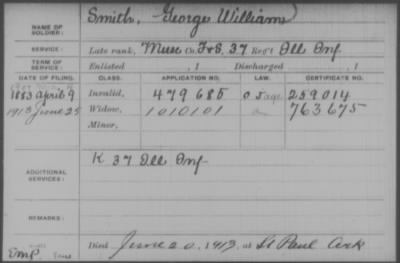 NAME OF SOLDIER: Smith, George William
SERVICE: Late rank, Mus Co. F&S, 37 Reg't Ill Inf.
TERM OF SERVICE: Enlisted , 1 Discharged , 1
DATE OF FILING. CLASS. APPLICATION NO. LAW. CERTIFICATE NO.
1883 April 9 Invalid, 479685 259014
1913 June 25 Widow, 1010101 763675
Minor,
ADDITIONAL SERVICES: K 37 Ill Inf
REMARKS:
Died June 20, 1913, at St Paul Ark